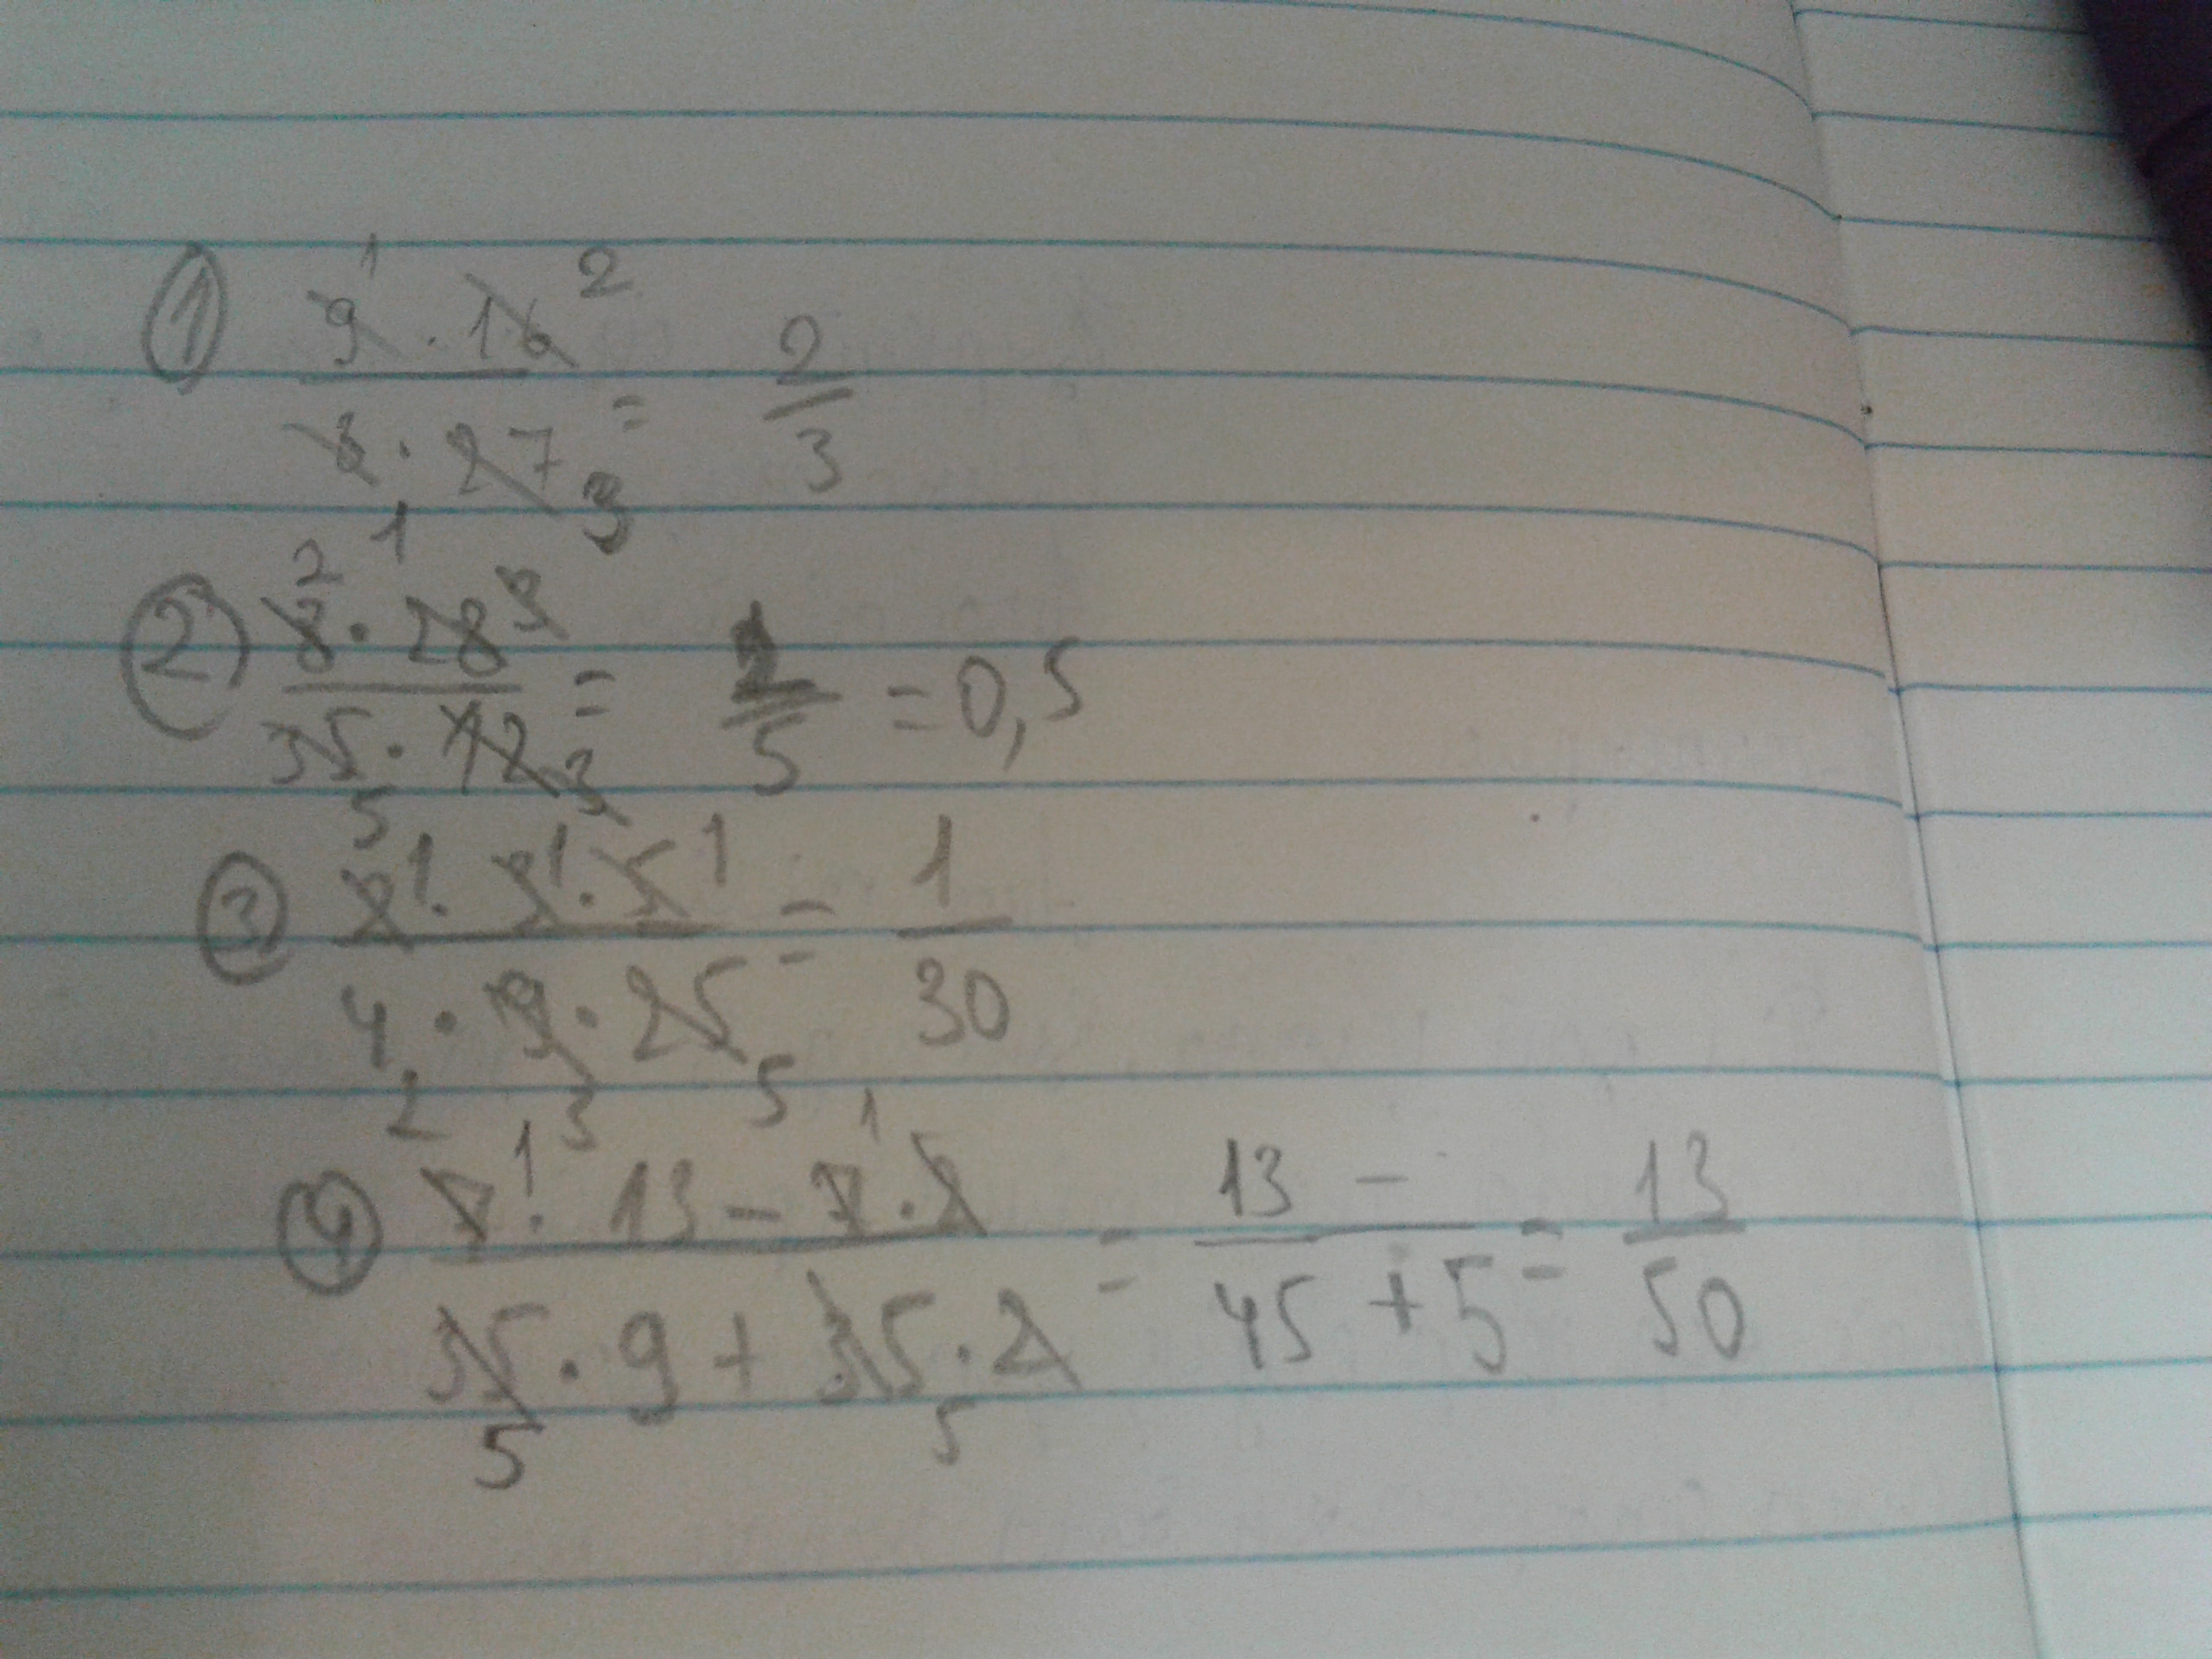 ① 9¹ · 16² / 8₁ · 27₃ = 2/3
② 8² · 28³ / 35₅ · 12₃ = 2/5 = 0,5
③ 2¹ · 3¹ · 5¹ / 4₂ · 9₃ · 25₅ = 1/30
④ 7¹ · 13 - 7¹ · 2 / 35₅ · 9 + 35₅ · 2 = 13 - / 45 + 5 = 13/50